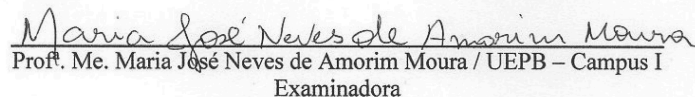 Maria José Neves de Amorim Moura
Profª. Me. Maria José Neves de Amorim Moura / UEPB – Campus I
Examinadora